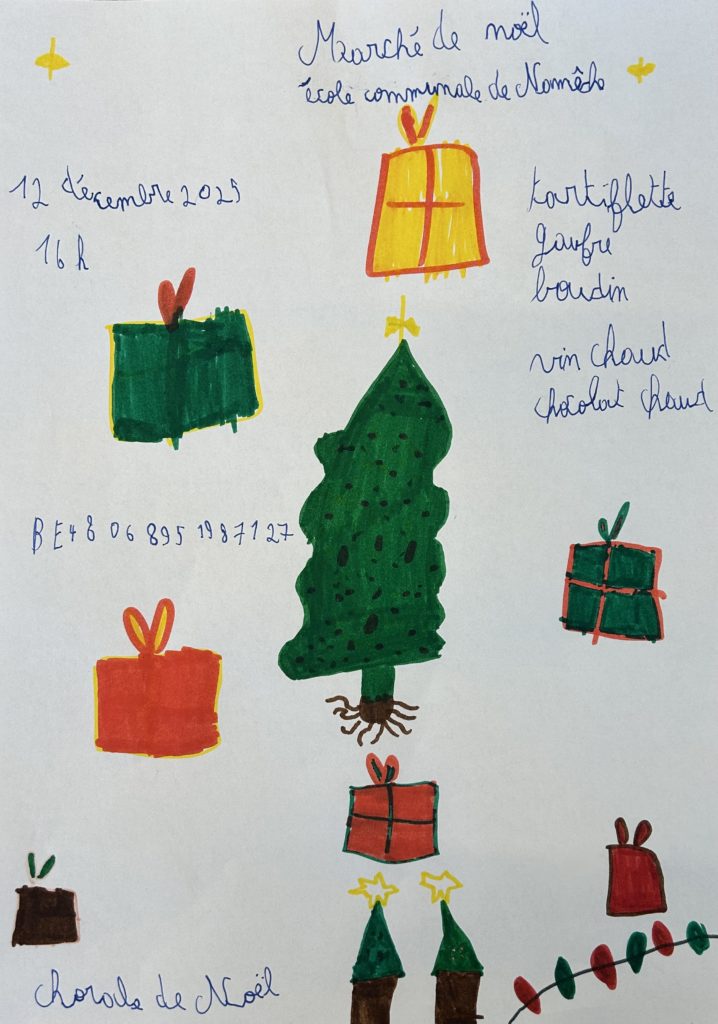 Marché de noël
école communale de Namêche
12 décembre 2025
16 h
tartiflette
gaufre
boudin
vin chaud
chocolat chaud
BE48 06 895 1987127
chorale de Noël